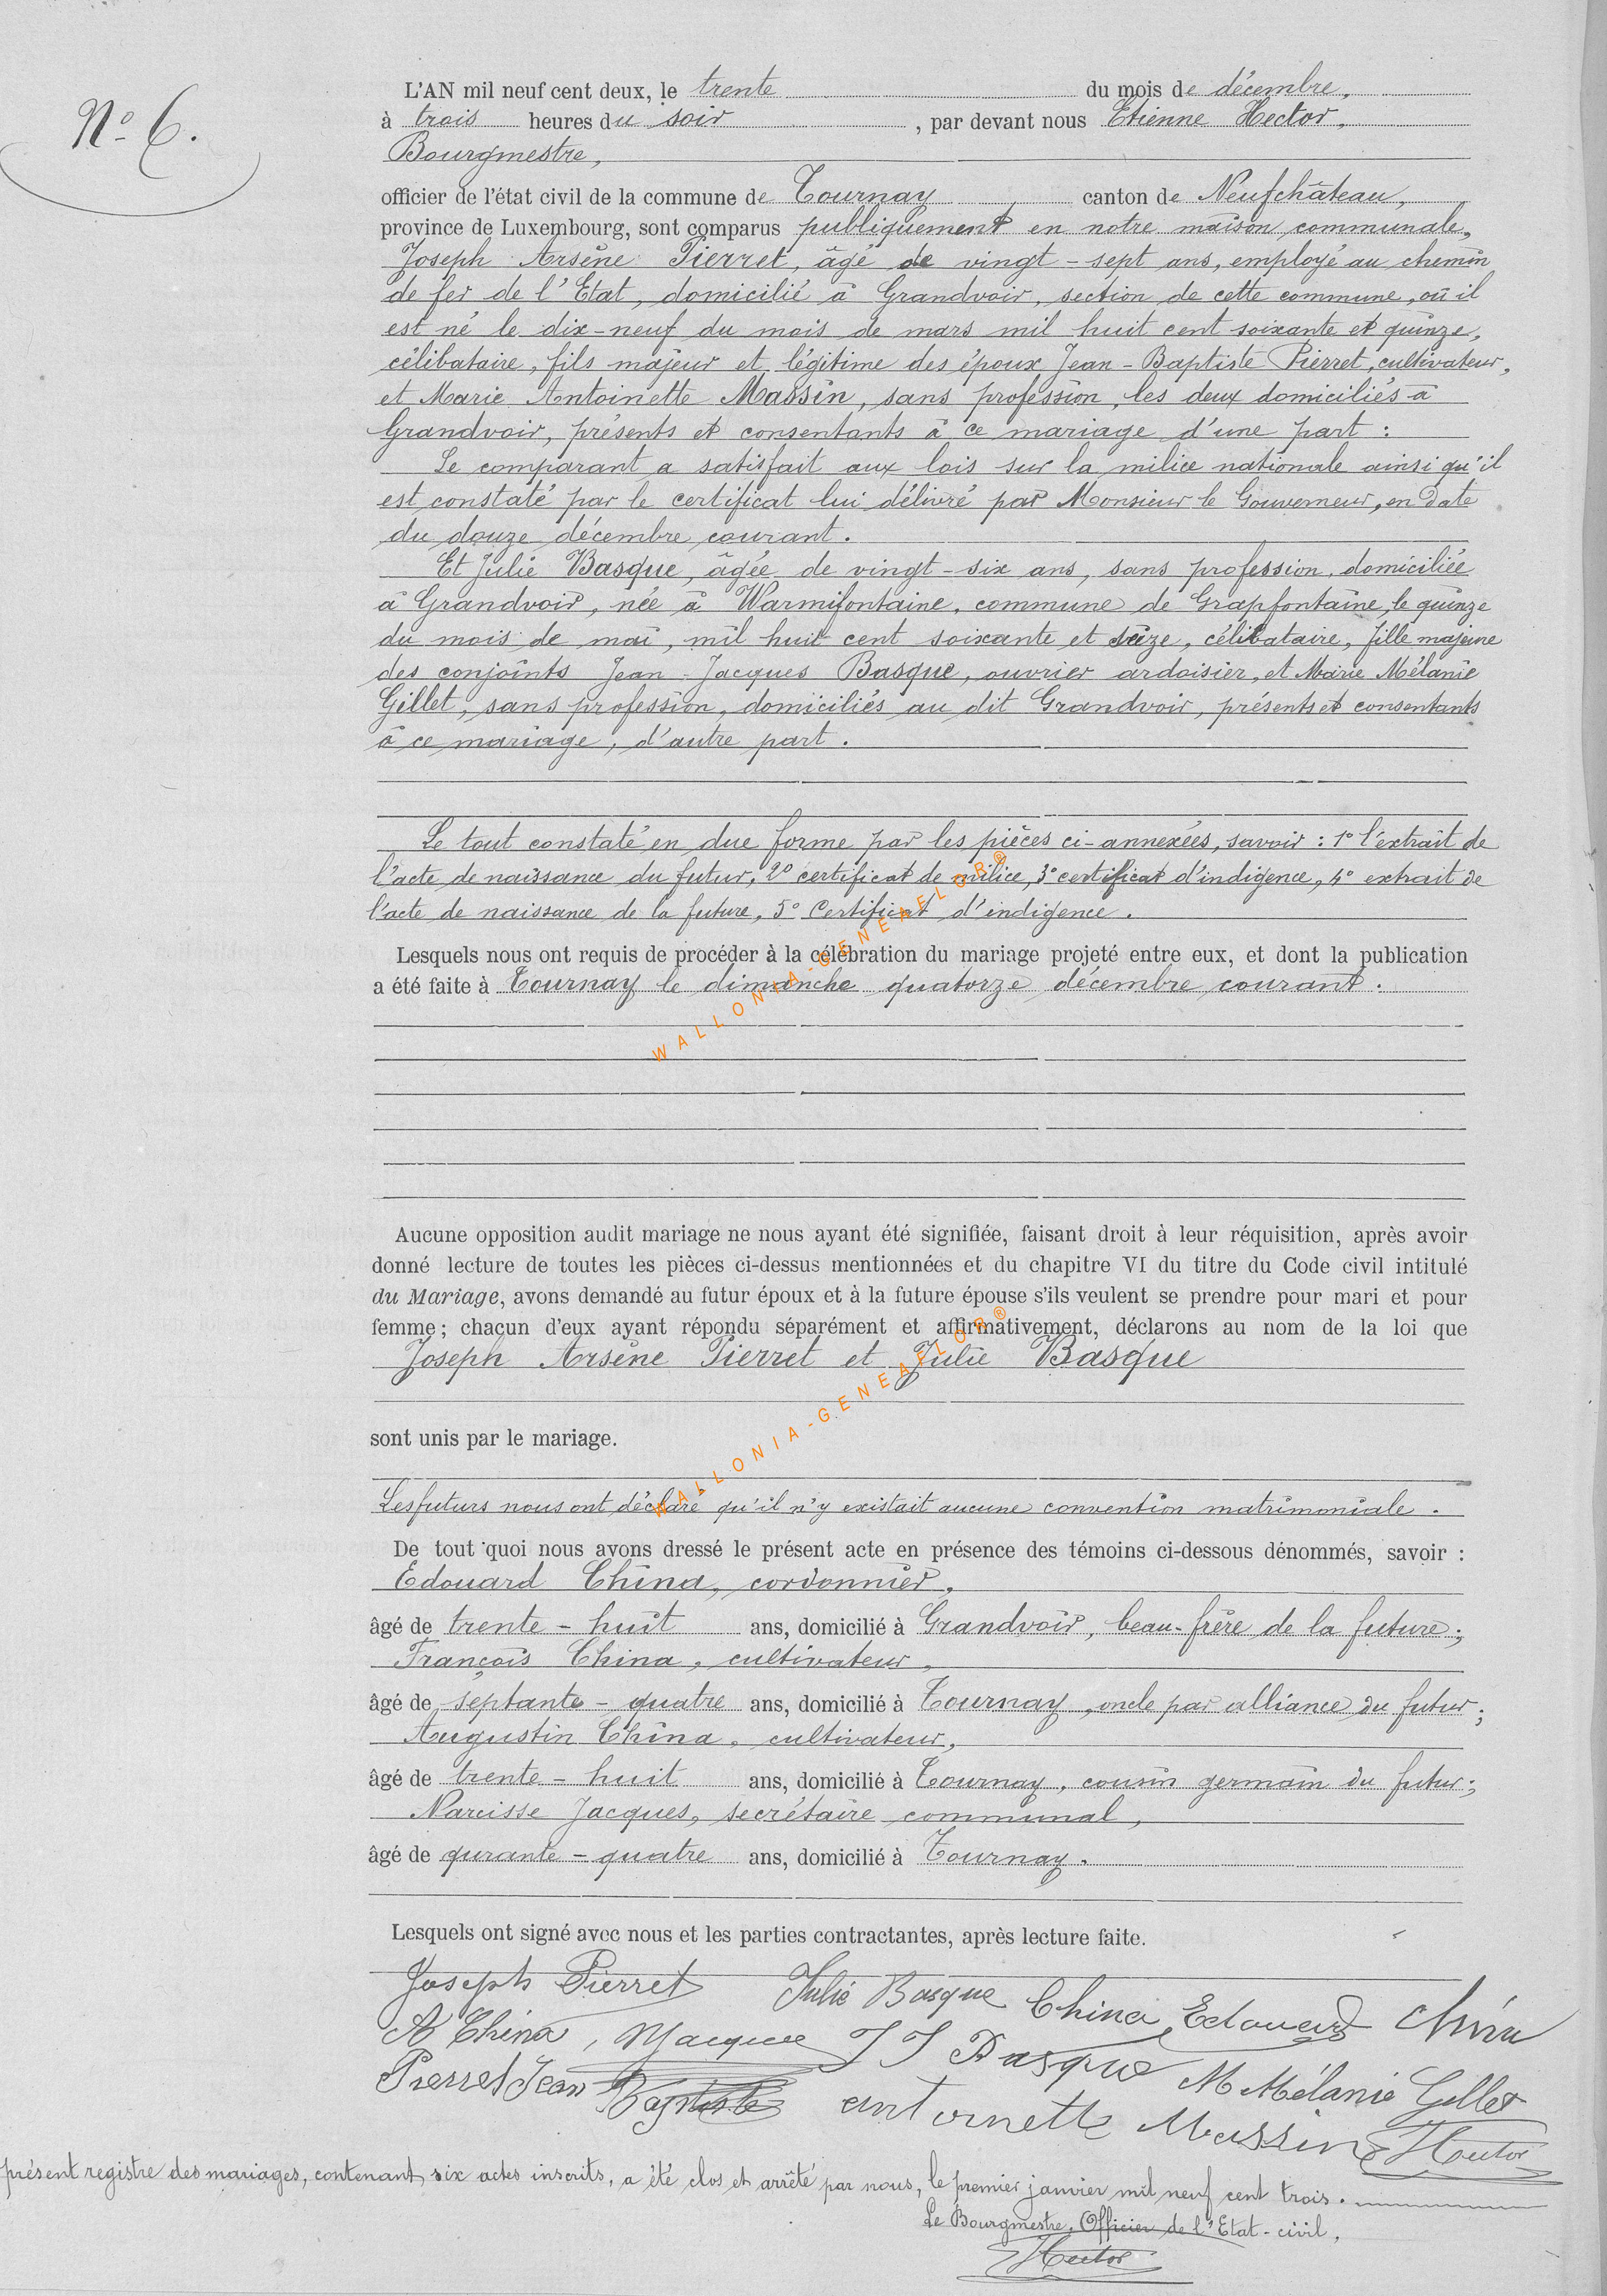 N° 6.
L'AN mil neuf cent deux, le trente du mois de décembre,
à trois heures du soir, par devant nous Etienne Hector,
Bourgmestre,
officier de l'état civil de la commune de Tournay canton de Neufchâteau,
province de Luxembourg, sont comparus publiquement en notre maison communale,
Joseph Arsène Pierret, âgé de vingt-sept ans, employé au chemin
de fer de l'Etat, domicilié à Grandvoir, section de cette commune, où il
est né le dix-neuf du mois de mars mil huit cent soixante et quinze,
célibataire, fils majeur et légitime des époux Jean-Baptiste Pierret, cultivateur,
et Marie Antoinette Massin, sans profession, les deux domiciliés à
Grandvoir, présents et consentants à ce mariage d'une part :
Le comparant a satisfait aux lois sur la milice nationale ainsi qu'il
est constaté par le certificat lui délivré par Monsieur le Gouverneur, en date
du douze décembre courant.
Et Julie Basque, âgée de vingt-six ans, sans profession, domiciliée
à Grandvoir, née à Warmifontaine, commune de Grapfontaine, le quinze
du mois de mai, mil huit cent soixante et seize, célibataire, fille majeure
des conjoints Jean-Jacques Basque, ouvrier ardoisier, et Marie Mélanie
Gillet, sans profession, domiciliés au dit Grandvoir, présents et consentants
à ce mariage, d'autre part.
Le tout constaté en due forme par les pièces ci-annexées, savoir : 1° l'extrait de
l'acte de naissance du futur, 2° certificat de milice, 3° certificat d'indigence, 4° extrait de
l'acte de naissance de la future, 5° Certificat d'indigence.
Lesquels nous ont requis de procéder à la célébration du mariage projeté entre eux, et dont la publication
a été faite à Tournay le dimanche quatorze décembre courant.
WALLONIA-GENEAFLOR®
Aucune opposition audit mariage ne nous ayant été signifiée, faisant droit à leur réquisition, après avoir
donné lecture de toutes les pièces ci-dessus mentionnées et du chapitre VI du titre du Code civil intitulé
du Mariage, avons demandé au futur époux et à la future épouse s'ils veulent se prendre pour mari et pour
femme ; chacun d'eux ayant répondu séparément et affirmativement, déclarons au nom de la loi que
Joseph Arsène Pierret et Julie Basque
sont unis par le mariage.
WALLONIA-GENEAFLOR®
Les futurs nous ont déclaré qu'il n'y existait aucune convention matrimoniale.
De tout quoi nous avons dressé le présent acte en présence des témoins ci-dessous dénommés, savoir :
Edouard China, cordonnier,
âgé de trente-huit ans, domicilié à Grandvoir, beau-frère de la future ;
François China, cultivateur,
âgé de septante-quatre ans, domicilié à Tournay, oncle par alliance du futur ;
Augustin China, cultivateur,
âgé de trente-huit ans, domicilié à Tournay, cousin germain du futur ;
Narcisse Jacques, secrétaire communal,
âgé de qurante-quatre ans, domicilié à Tournay.
Lesquels ont signé avec nous et les parties contractantes, après lecture faite.
Joseph Pierret Julie Basque China Edouard China
A China, NJacques J J Basque M Mélanie Gillet
Pierret Jean Baptiste antoinette Massin EHector
présent registre des mariages, contenant six actes inscrits, a été clos et arrêté par nous, le premier janvier mil neuf cent trois.
Le Bourgmestre, Officier de l'Etat-civil,
EHector